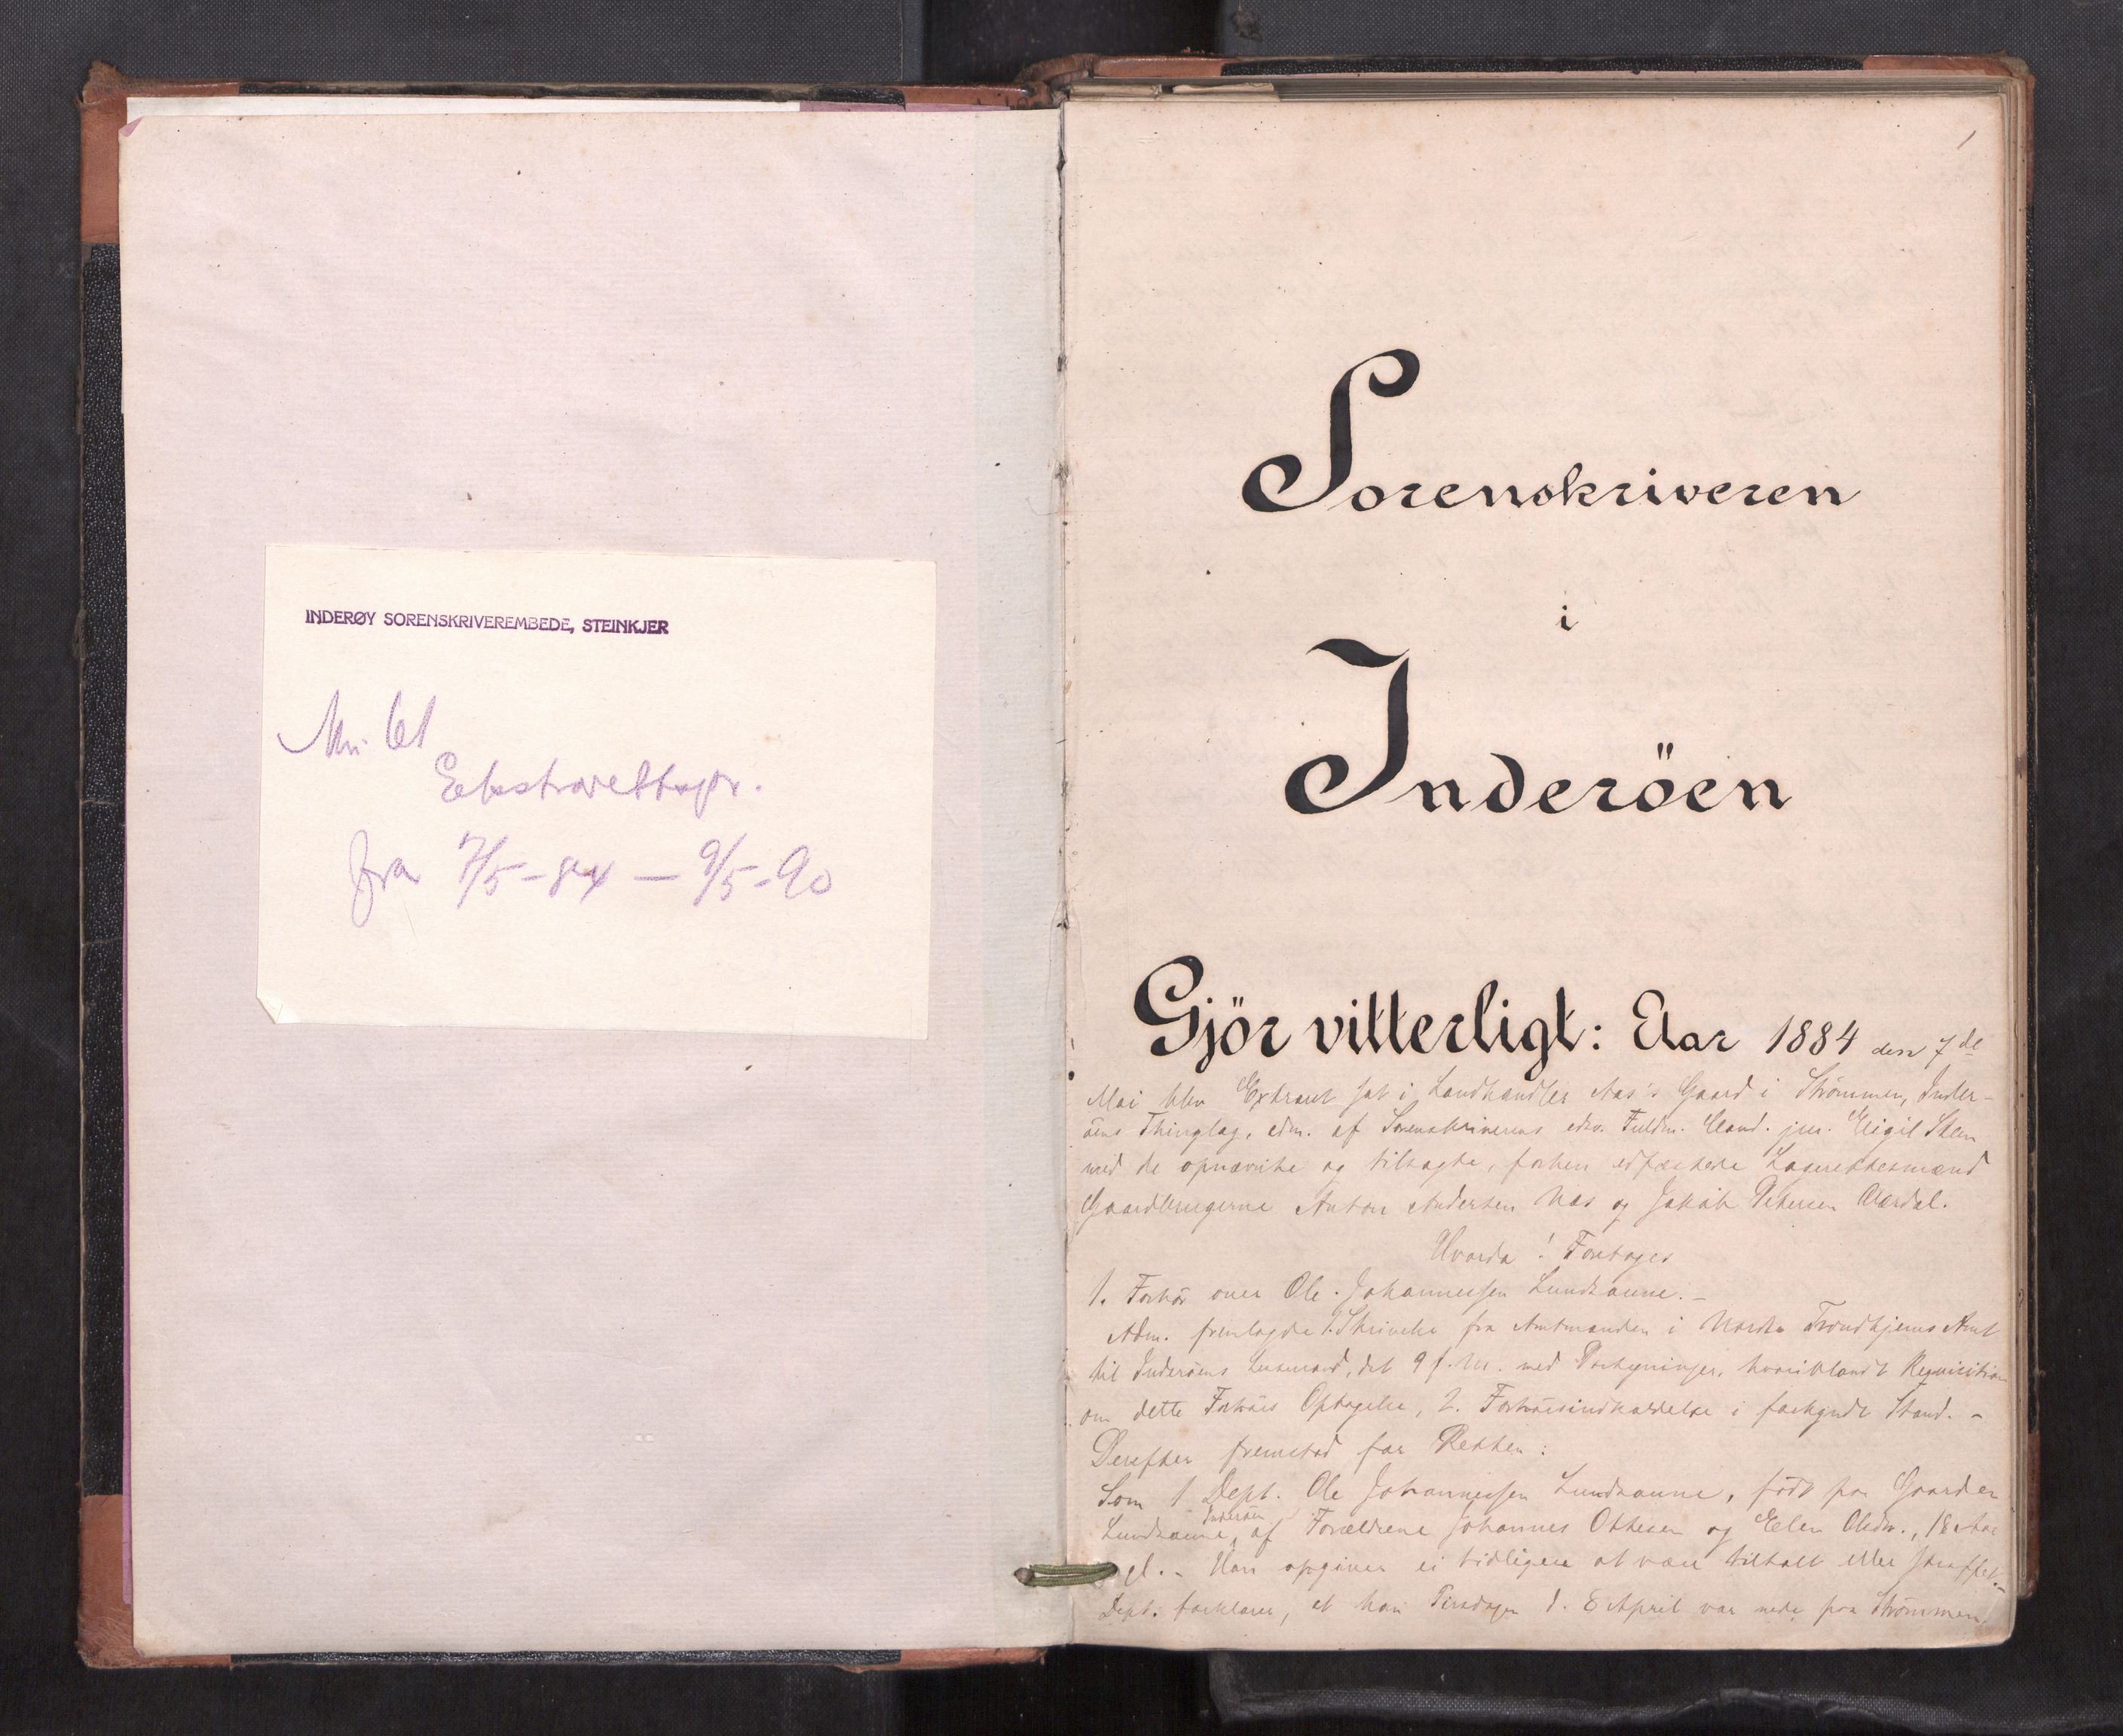 INDERØY SORENSKRIVEREMBEDE, STEINKJER
Ekstrarettspr.
fra 7/5-84 — 9/5-90
1
Sorenskriveren
i
Inderöen
Gjör vitterligt: Aar 1884 den 7de
Mai blev Extraret sat i Landhandler Aas's Gaard i Strömmen, Inder-
öens Thinglag, adm. af Sorenskriverens edsv. Fuldm. Cand. jur. Eigil
med de opnævnte og tilsagte, forhen edfæstede Lagrettesmænd
Gaardbrugerne Anton Andersen Næs og Jakob Petersen Aardal.
Hvorda! Foretoges
1. Forhör over Ole Johannessen Lundsaune.-
Adm. fremlagde 1. Skrivelse fra Amtmanden i Nordre Trondhjems Amt
til Inderöens Lensmand, dat 9 f. M. med Paategninger, hvoriblandt Requisition
om dette Forhörs Optagelse, 2. Forhörsindkaldelse i forkyndt Stand. -
Derefter fremstod for Retten:
Som 1 Dept. Ole Johannessen Lundsaune, född paa Gaarden
Inderöen
Lundsaune, af Forældrene Johannes Ottesen og Elen Olsdtr., 18 Aar
gl. - Han opgiver ei tidligere at være tiltalt eller straffet.-
Dept. forklarer, at han Tirsdagen d. 8 April var nede paa Strömmen.